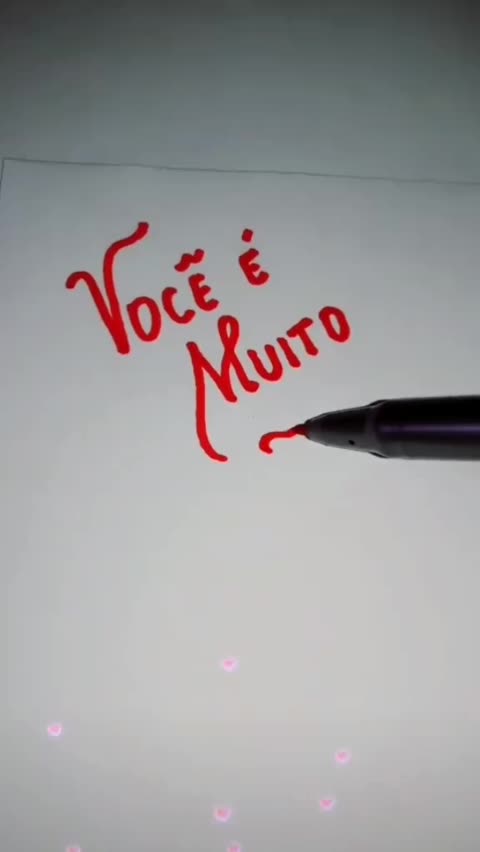 Você é
Muito